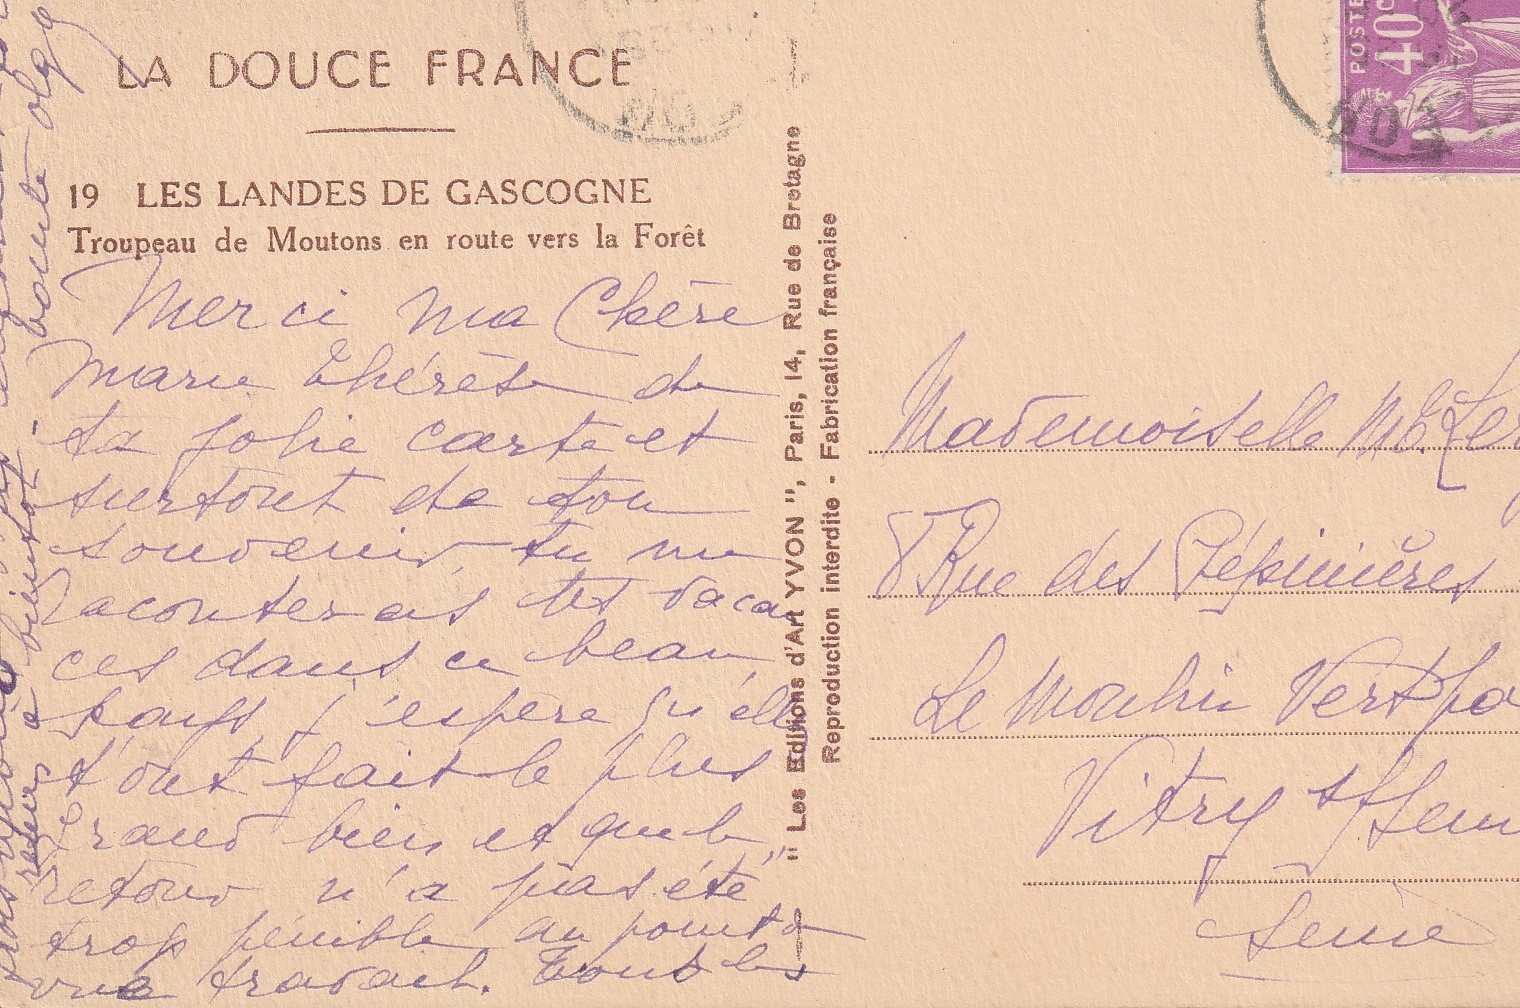 LA DOUCE FRANCE
19 LES LANDES DE GASCOGNE
Troupeau de Moutons en route vers la Forêt
Merci ma Chère
Marie Thérèse de
ta jolie carte et
surtout de ton
souvenir, tu me
raconterais tes vacan
ces dans ce beau
pays, j'espère qu'elles
t'ont fait le plus
grand bien et que le
retour n'a pas été
trop pénible au point de
vue travail. Tous les
trois
à bientôt
"Les Editions d'Art YVON", Paris, 14, Rue de Bretagne
Reproduction interdite - Fabrication française
POSTE
40c
60
Mademoiselle M.T. Ler
8 Rue des Pépinières
Le Moulin Vert par
Vitry s/Sein
Seine